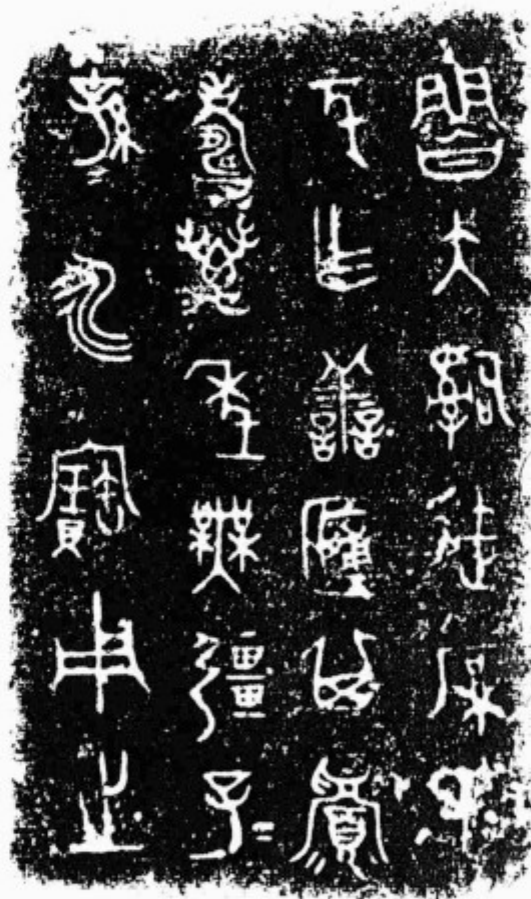 魯大𤔲徒厚氏
元乍善簠其眉
壽萬年無彊子=
孫=永寶用之